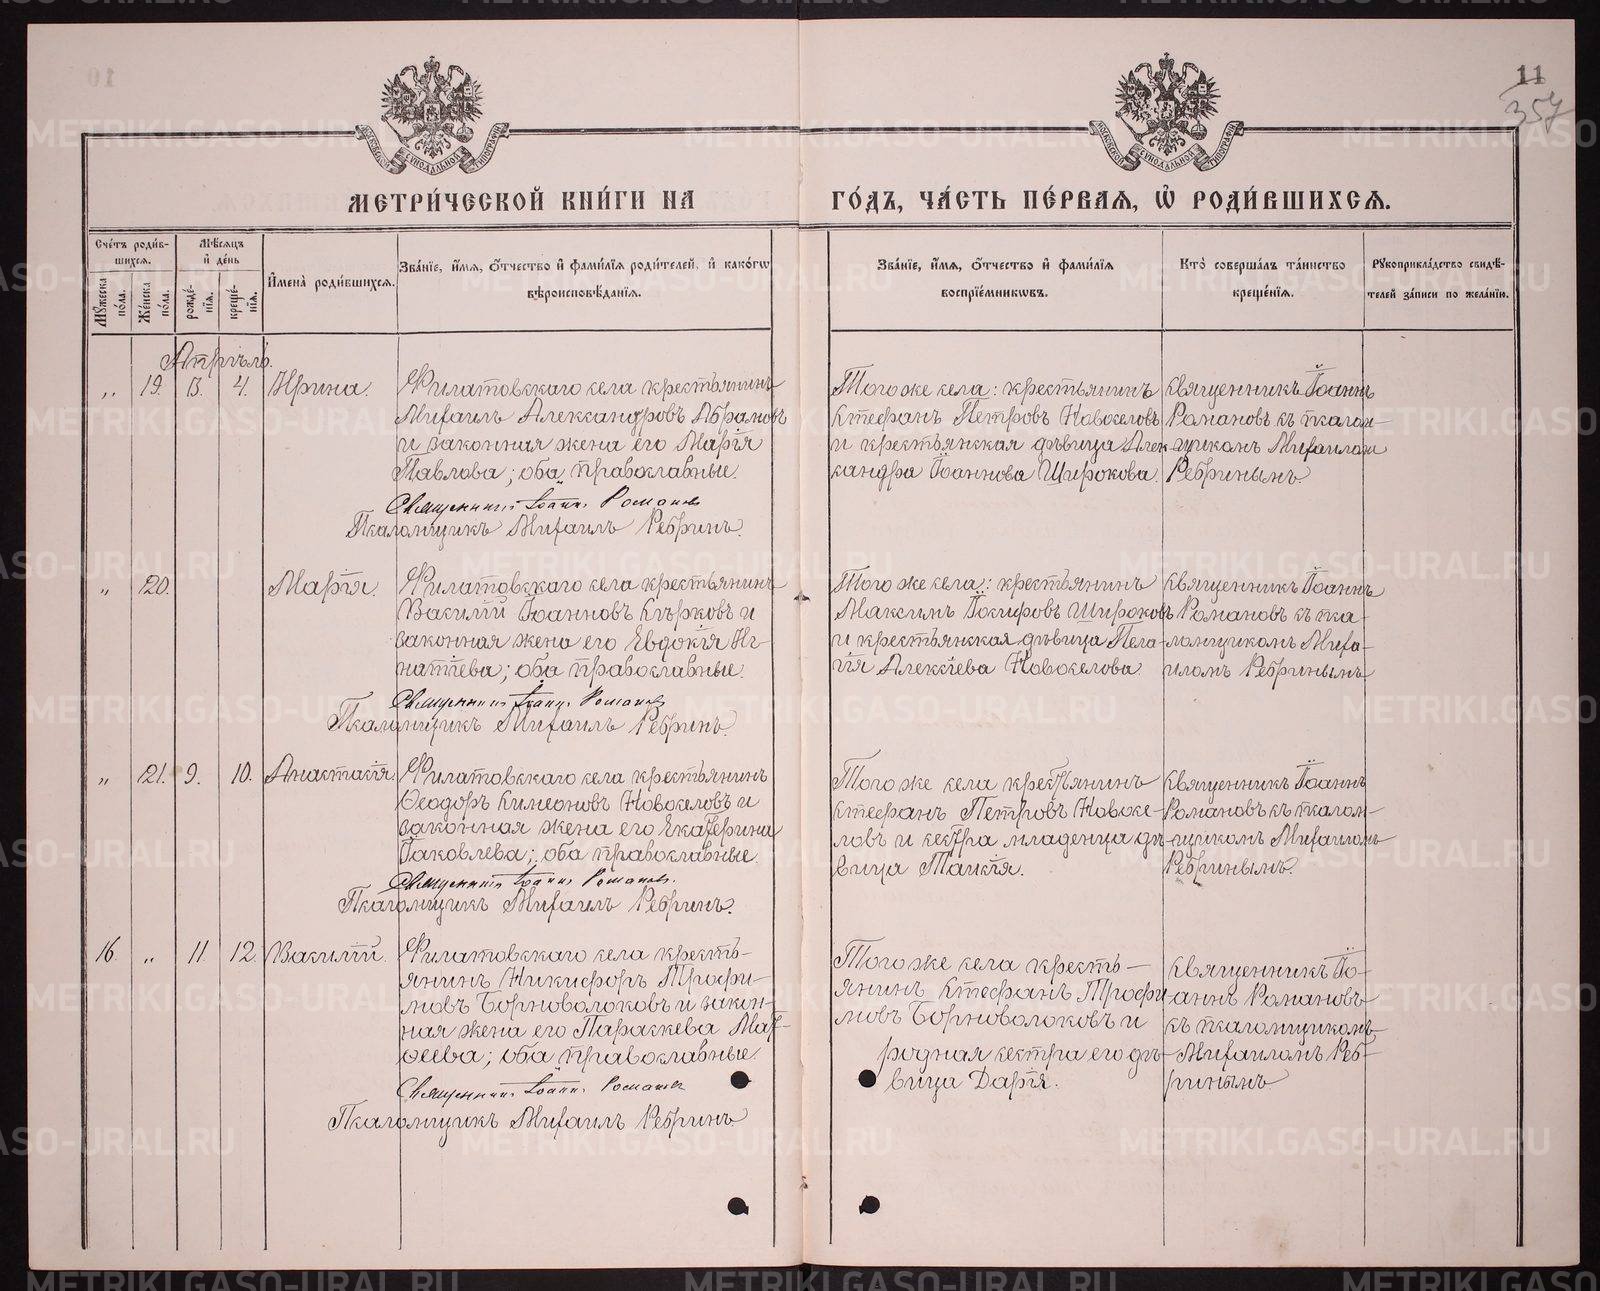 11
357
МОСКОВСКОЙ СИНОДАЛЬНОЙ ТИПОГРАФІИ
МОСКОВСКОЙ СИНОДАЛЬНОЙ ТИПОГРАФІИ
МЕТРИ́ЧЕСКОЙ КНИ́ГИ НА
ГО́ДЪ, ЧА́СТЬ ПЕ́РВАѦ, Ѡ РОДИ́ВШИХСѦ.
Сче́тъ роди́в-
шихсѧ.
Мꙋ́жеска по́ла.
Же́нска по́ла.
Мѣ́сѧцъ
и҆ де́нь
рожде́-
нїѧ.
креще́-
нїѧ.
И҆мена̀ роди́вшихсѧ.
Зва́нїе, и҆́мѧ, ѻ҆́тчество и҆ фами́лїѧ роди́телей, и҆ како́гѡ
вѣроисповѣ́данїѧ.
Зва́нїе, и҆́мѧ, ѻ҆́тчество и҆ фами́лїѧ
воспрїе́мникѡвъ.
Кто̀ соверша́лъ та́инство
креще́нїѧ.
Рꙋкоприкла́дство свидѣ́-
телей за́писи по жела́нїю.
Апрѣль.
„ 19. 3. 4. Ирина.
Филатовскаго села крестьянинъ
Михаилъ Александровъ Абрамовъ
и законная жена его Марія
Павлова; оба православные.
Священникъ Іоаннъ Романовъ
Псаломщикъ Михаилъ Ребринъ.
Того же села: крестьянинъ
Стефанъ Петровъ Новоселовъ
и крестьянская дѣвица Алек-
сандра Іоаннова Широкова.
Священникъ Іоаннъ
Романовъ съ псалом-
щикомъ Михаиломъ
Ребринымъ
„ 20. Марія.
Филатовскаго села крестьянинъ
Василій Іоанновъ Сѣрковъ и
законная жена его Евдокія Иг-
натіева; оба православные.
Священникъ Іоаннъ Романовъ
Псаломщикъ Михаилъ Ребринъ.
Того же села: крестьянинъ
Максимъ Іосифовъ Широковъ
и крестьянская дѣвица Пела-
гія Алексіева Новоселова.
Священникъ Іоаннъ
Романовъ съ пса-
ломщикомъ Миха-
иломъ Ребринымъ
„ 21. 9. 10. Анастасія.
Филатовскаго села крестьянинъ
Ѳеодоръ Симеоновъ Новоселовъ и
законная жена его Екатерина
Іаковлева; оба православные.
Священникъ Іоаннъ Романовъ.
Псаломщикъ Михаилъ Ребринъ.
Того же села крестьянинъ
Стефанъ Петровъ Новосе-
ловъ и сестра младенца дѣ-
вица Таисія.
Священникъ Іоаннъ
Романовъ съ псалом-
щикомъ Михаиломъ
Ребринымъ.
16. „ 11. 12. Василій.
Филатовскаго села кресть-
янинъ Никифоръ Трофи-
мовъ Борноволоковъ и закон-
ная жена его Параскева Мат-
ѳеева; оба православные.
Священникъ Іоаннъ Романовъ
Псаломщикъ Михаилъ Ребринъ
Того же села кресть-
янинъ Стефанъ Трофи-
мовъ Борноволоковъ и
родная сестра его дѣ-
вица Дарія.
Священникъ Іо-
аннъ Романовъ
съ псаломщикомъ
Михаиломъ Реб-
ринымъ
METRIKI.GASO-URAL.RU